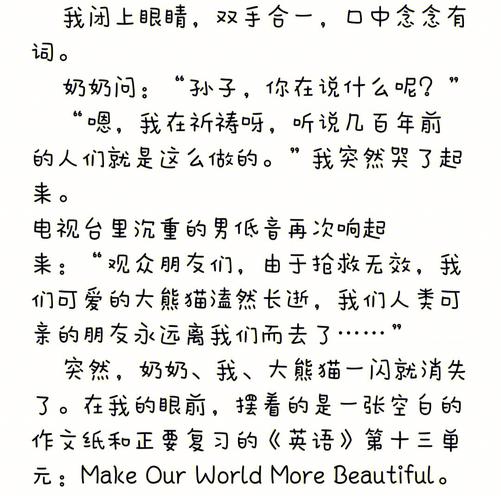 我闭上眼睛，双手合一，口中念念有
词。
奶奶问：“孙子，你在说什么呢？”
“嗯，我在祈祷呀，听说几百年前
的人们就是这么做的。”我突然哭了起
来。
电视台里沉重的男低音再次响起
来：“观众朋友们，由于抢救无效，我
们可爱的大熊猫溘然长逝，我们人类可
亲的朋友永远离我们而去了……”
突然，奶奶、我、大熊猫一闪就消失
了。在我的眼前，摆着的是一张空白的
作文纸和正要复习的《英语》第十三单
元：Make Our World More Beautiful。